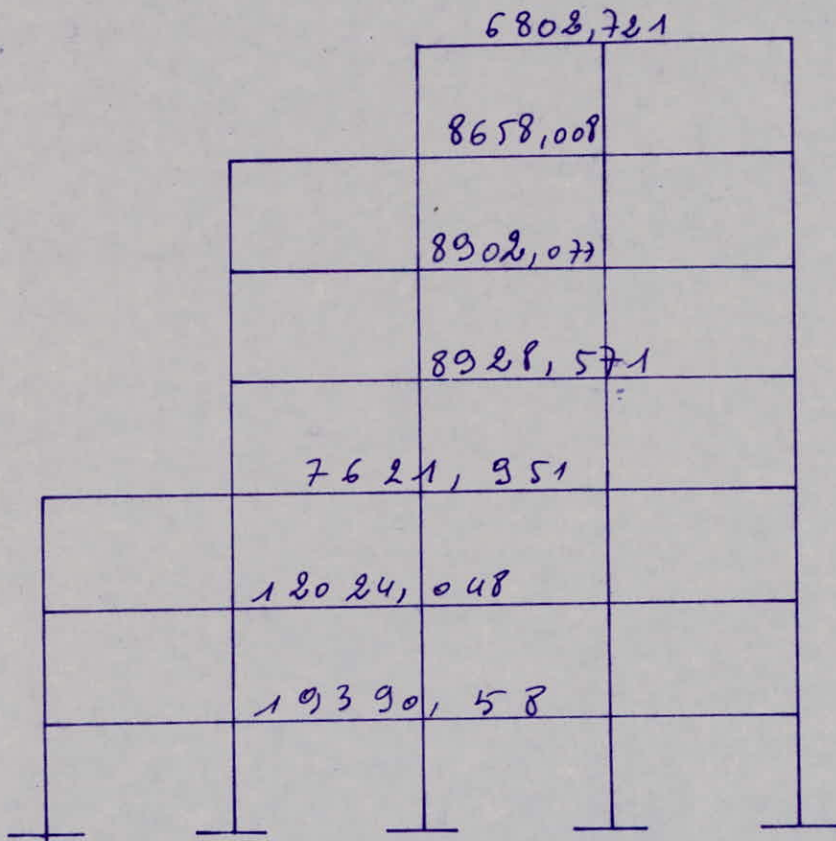 6802,721
8658,008
8902,077
8928,571
7621,951
12024,048
19390,58